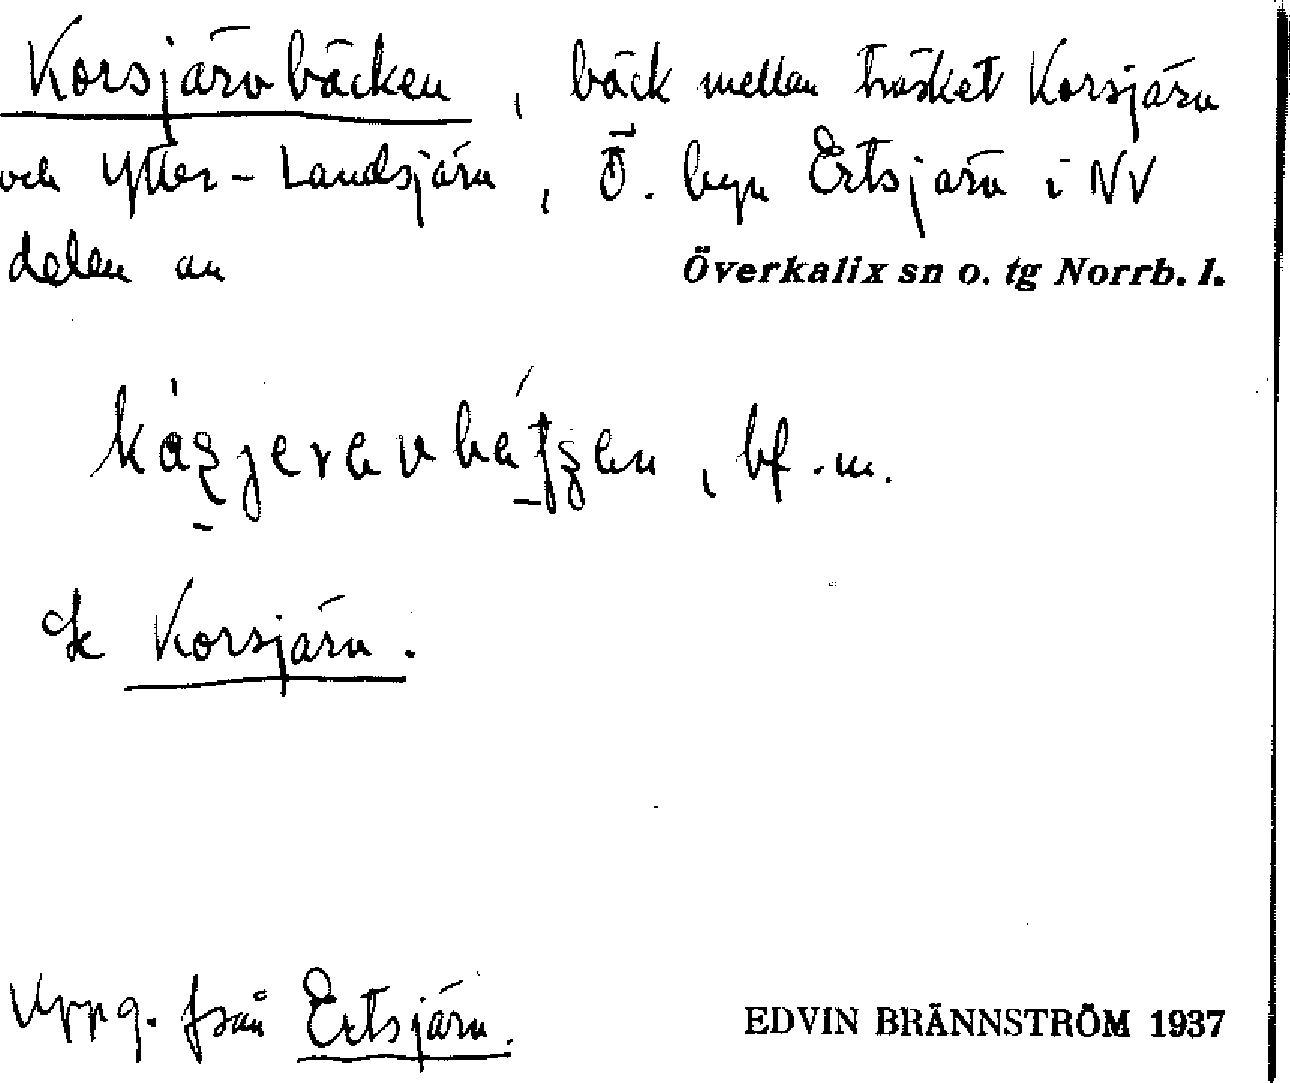 Korsjärvbäcken, bäck mellan träsket Korsjärv
och Ytter-Landsjärv, Ö. byn Ertsjärv i NV
delen av Överkalix sn o. tg Norrb. l.
bf. m.
Korsjärv.
Uppg. från Ertsjärv. EDVIN BRÄNNSTRÖM 1937